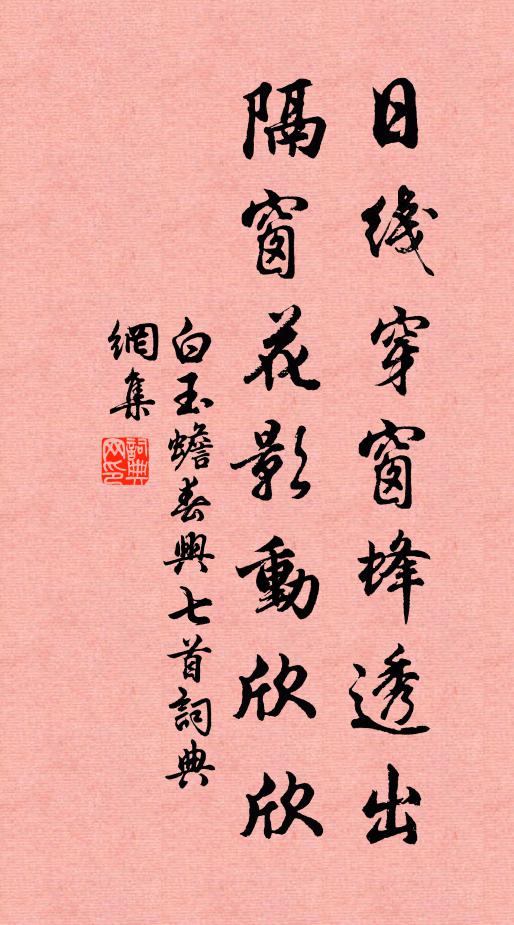 日线穿窗蜂透出
隔窗花影動欣欣
白玉蟾春興七首詞典
網集
詞典网印